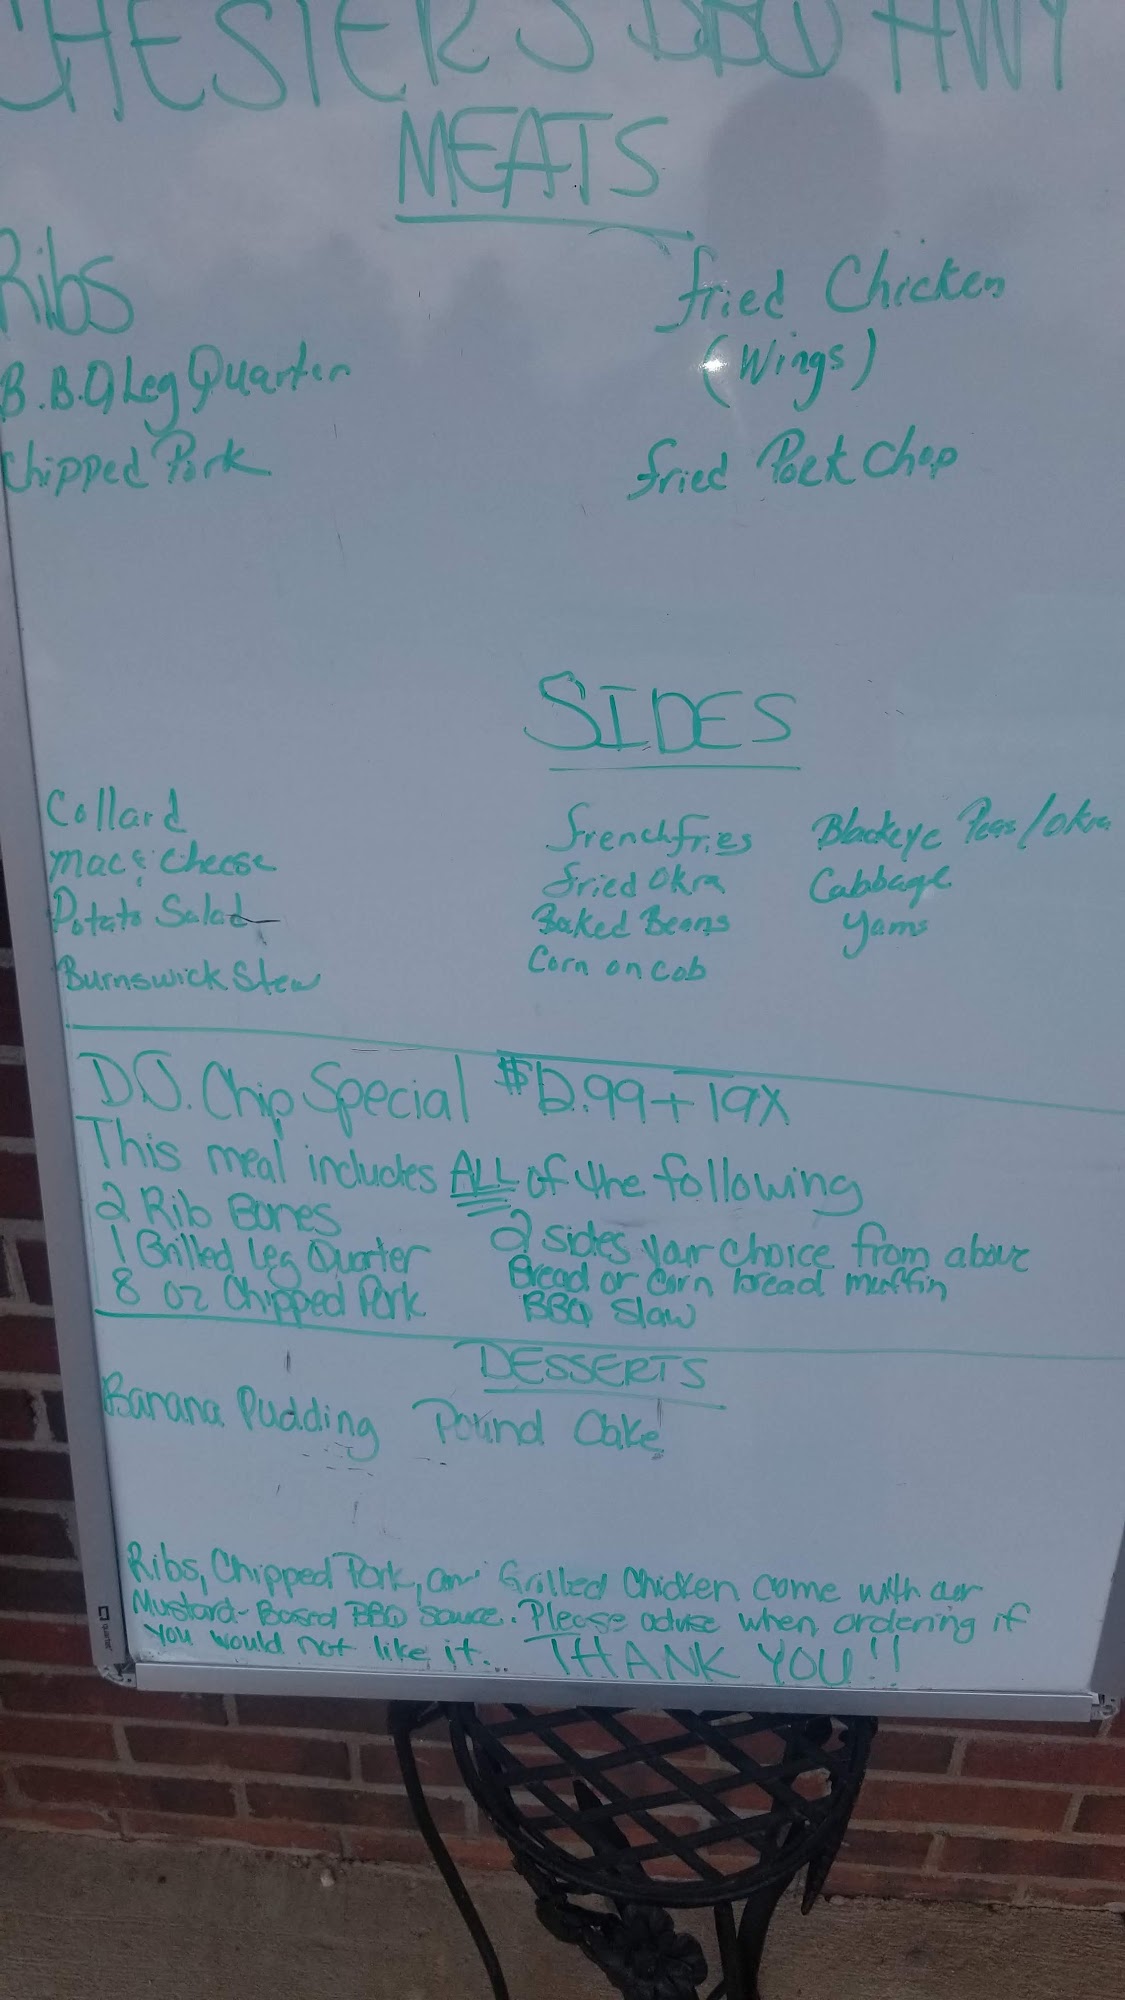 CHESTER'S BBQ HWY
MEATS
Ribs
B.B.Q Leg Quarter
Chipped Pork
Fried Chicken
(Wings)
Fried Pork Chop
SIDES
Collard
Mac & Cheese
Potato Salad
Burnswick Stew
French fries
Fried Okra
Baked Beans
Corn on Cob
Blackeye Peas/Okra
Cabbage
Yams
D.J. Chip Special $12.99 + Tax
This meal includes ALL of the following
2 Rib Bones
1 Grilled Leg Quarter
8 oz Chipped Pork
2 sides your choice from above
Bread or Corn bread muffin
BBQ Slaw
DESSERTS
Banana Pudding Pound Cake
Ribs, Chipped Pork, and Grilled Chicken come with our
Mustard-Based BBQ sauce. Please advise when ordering if
you would not like it... THANK YOU!!